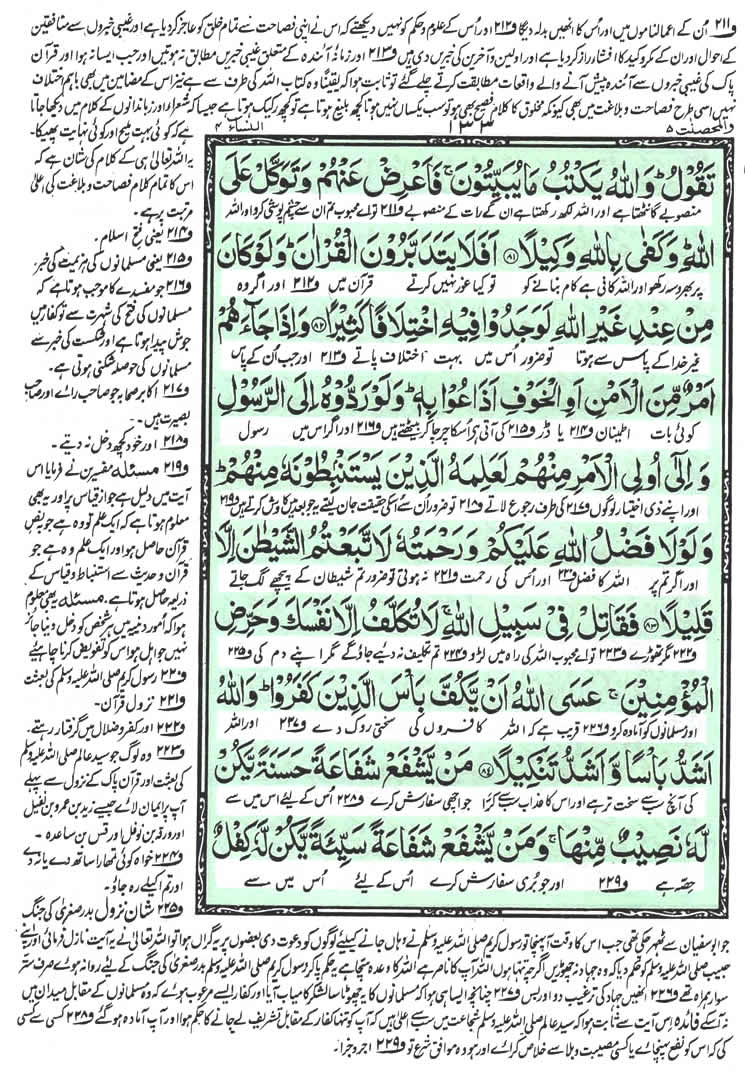 ف۲۱۱ اُن کے اعمالناموں میں اور اُس کا انھیں بدلہ دیگا ف۲۱۲ اور اُس کے علوم و حکم کو نہیں دیکھتے کہ اس نے اپنی فصاحت سے تمام خلق کو عاجز کر دیا ہے اور غیبی خبروں سے منافقین
کے احوال اور ان کے مکر و کید کا افشاءِ راز کر دیا ہے اور اولین و آخرین کی خبریں دی ہیں ف۲۱۳ اور زمانۂ آئندہ کے متعلق غیبی خبریں مطابق نہ ہوتیں اور جب ایسا نہ ہوا اور قرآن
پاک کی غیبی خبروں سے آئندہ پیش آنے والے واقعات مطابقت کرتے چلے گئے تو ثابت ہوا کہ یقیناً وہ کتاب اللہ کی طرف سے ہے نیز اس کے مضامین میں بھی باہم اختلاف
نہیں اسی طرح فصاحت و بلاغت میں بھی کیونکہ مخلوق کا کلام فصیح بھی ہو تو سب یکساں نہیں ہوتا کچھ بلیغ ہوتا ہے تو کچھ رکیک ہوتا ہے جیسا کہ شعراء اور زباندانوں کے کلام میں دیکھا جاتا
والمحصنت ۵
۱۳۳
النساء ۴
ہے کہ کوئی بہت ملیح اور کوئی نہایت پھیکا۔
یہ اللہ تعالیٰ ہی کے کلام کی شان ہے کہ
اس کا تمام کلام فصاحت و بلاغت کی اعلیٰ
مرتبت پر ہے۔
ف۲۱۴ یعنی فتح اسلام۔
ف۲۱۵ یعنی مسلمانوں کی ہزیمت کی خبر۔
ف۲۱۶ جو مفسدے کا موجب ہوتا ہے کہ
مسلمانوں کی فتح کی شہرت سے تو کفار میں
جوش پیدا ہوتا ہے اور شکست کی خبر سے
مسلمانوں کی حوصلہ شکنی ہوتی ہے۔
ف۲۱۷ اکابر صحابہ جو صاحب رائے اور صاحب
بصیرت ہیں۔
ف۲۱۸ اور خود کچھ دخل نہ دیتے۔
ف۲۱۹ مسئلہ مفسرین نے فرمایا اس
آیت میں دلیل ہے جواز قیاس پر اور یہ بھی
معلوم ہوتا ہے کہ ایک علم تو وہ ہے جو بنص
قرآن حاصل ہو اور ایک علم وہ ہے جو
قرآن و حدیث سے استنباط و قیاس کے
ذریعہ حاصل ہوتا ہے۔ مسئلہ یہ بھی معلوم
ہوا کہ امور دینیہ میں ہر شخص کو دخل دینا جائز
نہیں جو اہل ہو اس کو تفویض کرنا چاہیئے
ف۲۲۰ رسول کریم صلی اللہ علیہ وسلم کی بعثت
ف۲۲۱ نزول قرآن۔
ف۲۲۲ اور کفر و ضلال میں گرفتار رہتے۔
ف۲۲۳ وہ لوگ جو سید عالم صلی اللہ علیہ وسلم
کی بعثت اور قرآن پاک کے نزول سے پہلے
آپ پر ایمان لائے جیسے زید بن عمرو بن نفیل
اور ورقہ بن نوفل اور قس بن ساعدہ۔
ف۲۲۴ خواہ کوئی تمھارا ساتھ دے یا نہ دے
اور تم اکیلے رہ جاؤ۔
ف۲۲۵ شان نزول بدر صغریٰ کی جنگ
تَقُوْلُ ؕ وَاللّٰهُ يَكْتُبُ مَا يُبَيِّتُوْنَ ۚ فَاَعْرِضْ عَنْهُمْ وَتَوَكَّلْ عَلَى
منصوبے گانٹھتا ہے اور اللہ لکھ رکھتا ہے ان کے رات کے منصوبے ف۲۱۱ تو اے محبوب تم ان سے چشم پوشی کرو اور اللہ
اللّٰهِ ؕ وَكَفٰى بِاللّٰهِ وَكِيْلًا ۝۸۱ اَفَلَا يَتَدَبَّرُوْنَ الْقُرْاٰنَ ؕ وَلَوْ كَانَ
پر بھروسہ رکھو اور اللہ کافی ہے کام بنانے کو تو کیا غور نہیں کرتے قرآن میں ف۲۱۲ اور اگر وہ
مِنْ عِنْدِ غَيْرِ اللّٰهِ لَوَجَدُوْا فِيْهِ اخْتِلَافًا كَثِيْرًا ۝۸۲ وَاِذَا جَآءَهُمْ
غیر خدا کے پاس سے ہوتا تو ضرور اُس میں بہت اختلاف پاتے ف۲۱۳ اور جب اُن کے پاس
اَمْرٌ مِّنَ الْاَمْنِ اَوِ الْخَوْفِ اَذَاعُوْا بِهٖ ؕ وَلَوْ رَدُّوْهُ اِلَى الرَّسُوْلِ
کوئی بات اطمینان ف۲۱۴ یا ڈر ف۲۱۵ کی آتی ہے اُسکا چرچا کر بیٹھتے ہیں ف۲۱۶ اور اگر اس میں رسول
وَاِلٰٓى اُولِى الْاَمْرِ مِنْهُمْ لَعَلِمَهُ الَّذِيْنَ يَسْتَنْۢبِطُوْنَهٗ مِنْهُمْ ؕ
اور اپنے ذی اختیار لوگوں ف۲۱۷ کی طرف رجوع لاتے ف۲۱۸ تو ضرور اُن سے اُسکی حقیقت جان لیتے یہ جو بعد میں کاوش کرتے ہیں ف۲۱۹
وَلَوْلَا فَضْلُ اللّٰهِ عَلَيْكُمْ وَرَحْمَتُهٗ لَاتَّبَعْتُمُ الشَّيْطٰنَ اِلَّا
اور اگر تم پر اللہ کا فضل ف۲۲۰ اور اُس کی رحمت ف۲۲۱ نہ ہوتی تو ضرور تم شیطان کے پیچھے لگ جاتے
قَلِيْلًا ۝۸۳ فَقَاتِلْ فِيْ سَبِيْلِ اللّٰهِ ۚ لَا تُكَلَّفُ اِلَّا نَفْسَكَ وَحَرِّضِ
ف۲۲۲ مگر تھوڑے ف۲۲۳ تو اے محبوب اللہ کی راہ میں لڑو ف۲۲۴ تم تکلیف نہ دیے جاؤ گے مگر اپنے دم کی ف۲۲۵
الْمُؤْمِنِيْنَ ۚ عَسَى اللّٰهُ اَنْ يَّكُفَّ بَاْسَ الَّذِيْنَ كَفَرُوْا ؕ وَاللّٰهُ
اور مسلمانوں کو آمادہ کرو ف۲۲۶ قریب ہے کہ اللہ کافروں کی سختی روک دے ف۲۲۷ اور اللہ
اَشَدُّ بَاْسًا وَّاَشَدُّ تَنْكِيْلًا ۝۸۴ مَنْ يَّشْفَعْ شَفَاعَةً حَسَنَةً يَّكُنْ
کی آنچ سب سے سخت تر ہے اور اس کا عذاب سب سے کڑا جو اچھی سفارش کرے ف۲۲۸ اُس کے لیے اس میں سے
لَّهٗ نَصِيْبٌ مِّنْهَا ۚ وَمَنْ يَّشْفَعْ شَفَاعَةً سَيِّئَةً يَّكُنْ لَّهٗ كِفْلٌ
حصّہ ہے ف۲۲۹ اور جو بُری سفارش کرے اُس کے لیئے اُس میں سے
جو ابو سفیان سے ٹھہر چکی تھی جب اس کا وقت آپہنچا تو رسول کریم صلی اللہ علیہ وسلم نے وہاں جانے کیلئے لوگوں کو دعوت دی بعضوں پر یہ گراں ہوا تو اللہ تعالیٰ نے یہ آیت نازل فرمائی اور اپنے
حبیب صلی اللہ علیہ وسلم کو حکم دیا کہ وہ جہاد نہ چھوڑیں اگرچہ تنہا ہوں اللہ آپ کا ناصر ہے اللہ کا وعدہ سچا ہے یہ حکم پا کر رسول کریم صلی اللہ علیہ وسلم بدر صغریٰ کی جنگ کے لیے روانہ ہوئے صرف ستّر
سوار ہمراہ تھے ف۲۲۶ انھیں جہاد کی ترغیب دو اور بس ف۲۲۷ چنانچہ ایسا ہی ہوا کہ مسلمانوں کا یہ چھوٹا سا لشکر کامیاب آیا اور کفار ایسے مرعوب ہوئے کہ وہ مسلمانوں کے مقابل میدان میں
نہ آسکے فائدہ اس آیت سے ثابت ہوا کہ سید عالم صلی اللہ علیہ وسلم شجاعت میں سب سے اعلیٰ ہیں کہ آپ کو تنہا کفار کے مقابل تشریف لے جانے کا حکم ہوا اور آپ آمادہ ہو گئے ف۲۲۸ کسی سے کسی
کی کہ اس کو نفع پہنچائے یا کسی مصیبت و بلا سے خلاص کرائے اور ہو وہ موافق شرع تو ف۲۲۹ اجر و جزا۔